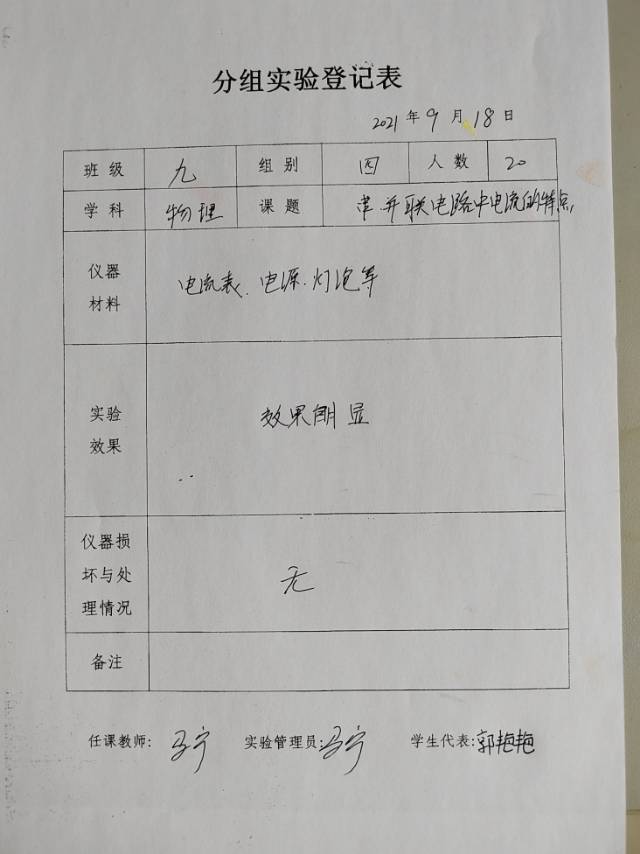 分组实验登记表
2021年9月18日
班级 九 组别 四 人数 20
学科 物理 课题 串.并联电路中电流的特点
仪器
材料
电流表、电源.灯泡等
实验
效果
效果明显
仪器损
坏与处
理情况
无
备注
任课教师: 马宁 实验管理员: 马宁 学生代表: 郭艳艳